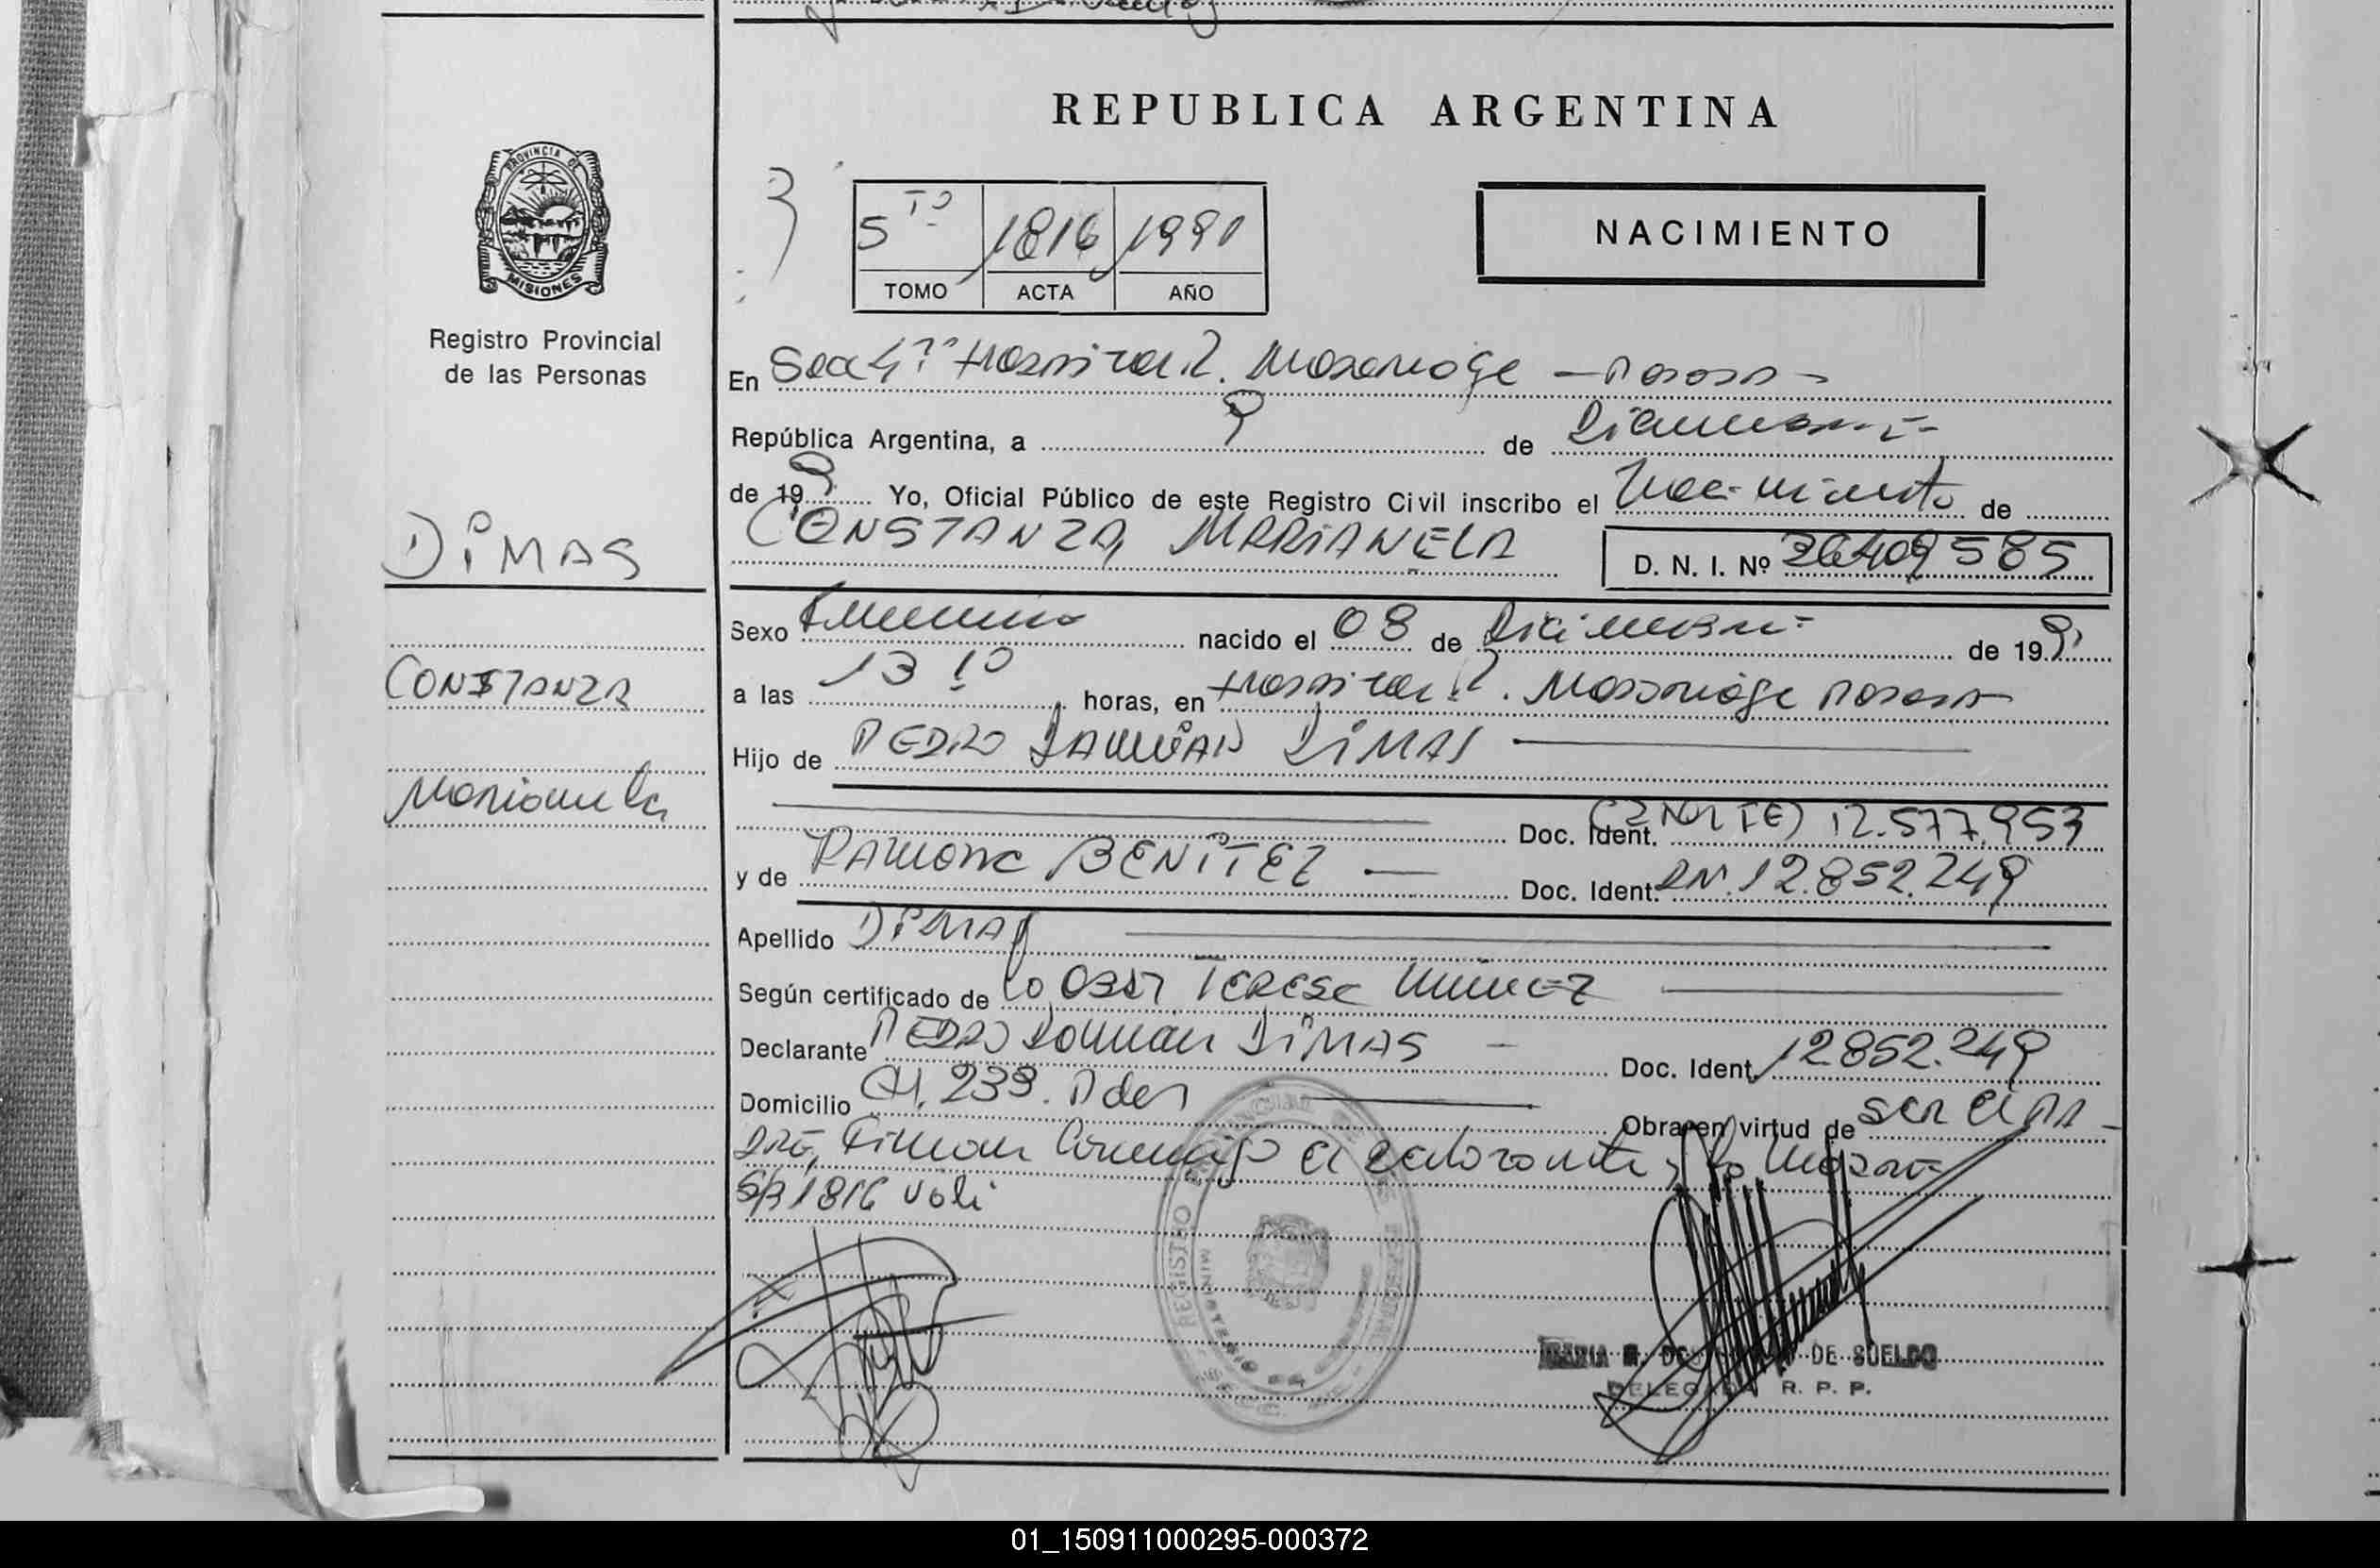 REPUBLICA ARGENTINA
PROVINCIA DE
MISIONES
Registro Provincial
de las Personas
5 TO 1816 1991
TOMO ACTA AÑO
NACIMIENTO
En Sec 4ta Hospital R. Madariaga - Posadas -
República Argentina, a 9 de Diciembre
de 19 9 Yo, Oficial Público de este Registro Civil inscribo el Nacimiento de
DIMAS
CONSTANZA, MARIANELA
D. N. I. Nº 36.409585
Sexo Femenino nacido el 08 de Diciembre de 19 9
CONSTANZA
a las 13 10 horas, en Hospital R. Madariaga Posadas
Hijo de PEDRO DAMIÁN DIMAS
Marianela
Doc. Ident. 12.577.953
y de Ramona BENITEZ Doc. Ident. DNI. 12.852.249
Apellido DIMAS
Según certificado de la Obst TERESA
Declarante PEDRO Damián DIMAS Doc. Ident. 12852.249
Domicilio CH. 239. Pdas Obra en virtud de SER EL PA-
DRE, Firman Conmigo el declarante y la Madre
S/R 1816 Vale
REGISTRO PROVINCIAL DE LAS PERSONAS
MINISTERIO DE
MARIA DE SUELDO
DELEGADA R. P. P.
01_150911000295-000372